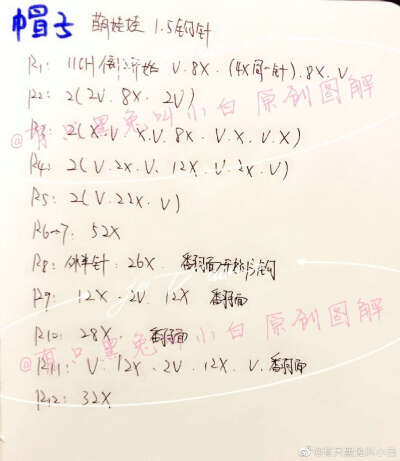 帽子 萌娃娃 1.5钩针
R1: 11CH 倒2开始 V. 8X. (4X同一针). 8X. V
R2: 2(2V. 8X. 2V)
R3: 2(X. V. X. V. 8X. V. X. V. X)
R4: 2(V. 2X. V. 12X. V. 2X. V)
R5: 2(V. 22X. V)
R6→7: 52X
R8: 外半针: 26X. 翻面开始片钩
R9: 12X. 2V. 12X 翻面
R10: 28X. 翻面
R11: V. 12X. 2V. 12X. V. 翻面
R12: 32X
@有只黑兔叫小白 原创图解
@有只黑兔叫小白 原创图解